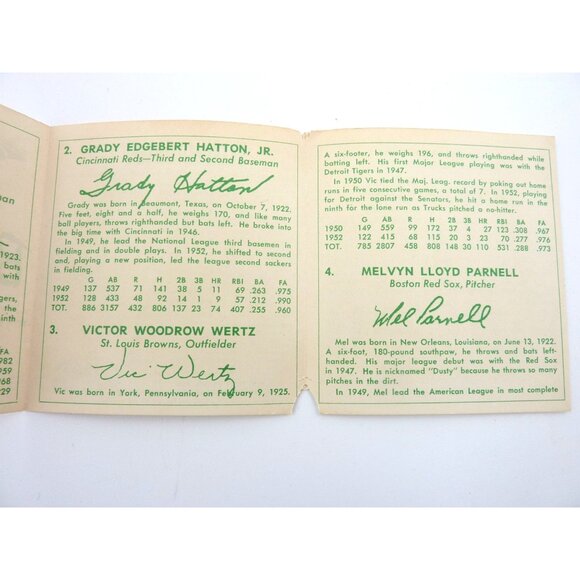 an
1923.
bats
with
gers,
the
ninth
FA
982
959
968
229
2. GRADY EDGEBERT HATTON, JR.
Cincinnati Reds—Third and Second Baseman
Grady Hatton
Grady was born in Beaumont, Texas, on October 7, 1922.
Five feet, eight and a half, he weighs 170, and like many
ball players, throws righthanded but bats left. He broke into
the big time with Cincinnati in 1946.
In 1949, he lead the National League third basemen in
fielding and double plays. In 1952, he shifted to second
and, playing a new position, led the league second sackers
in fielding.
G AB R H 2B 3B HR RBI BA FA
1949 137 537 71 141 38 5 11 69 .263 .975
1952 128 433 48 92 14 1 9 57 .212 .990
TOT. 886 3157 432 806 137 23 74 407 .255 .960
3. VICTOR WOODROW WERTZ
St. Louis Browns, Outfielder
Vic Wertz
Vic was born in York, Pennsylvania, on February 9, 1925.
A six-footer, he weighs 196, and throws righthanded while
batting left. His first Major League playing was with the
Detroit Tigers in 1947.
In 1950 Vic tied the Maj. Leag. record by poking out home
runs in five consecutive games, a total of 7. In 1952, playing
for Detroit against the Senators, he hit a home run in the
ninth for the lone run as Trucks pitched a no-hitter.
G AB R H 2B 3B HR RBI BA FA
1950 149 559 99 172 37 4 27 123 .308 .967
1952 122 415 68 115 20 5 23 70 .277 .976
TOT. 785 2807 458 808 148 30 110 531 .288 .973
4. MELVYN LLOYD PARNELL
Boston Red Sox, Pitcher
Mel Parnell
Mel was born in New Orleans, Louisiana, on June 13, 1922.
A six-foot, 180-pound southpaw, he throws and bats left-
handed. His major league debut was with the Red Sox
in 1947. He is nicknamed "Dusty" because he throws so many
pitches in the dirt.
In 1949, Mel lead the American League in most complete